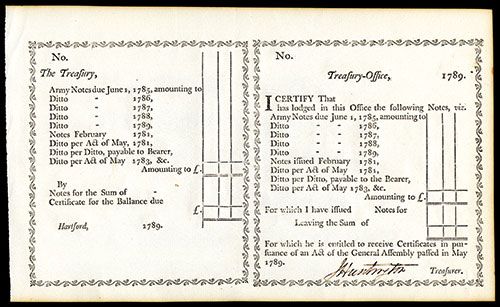 No.
The Treasury,
Army Notes due June 1, 1785, amounting to
Ditto - 1786,
Ditto - 1787,
Ditto - 1788,
Ditto - 1789,
Notes February 1781,
Ditto per Act of May, 1781,
Ditto per Ditto, payable to Bearer,
Ditto per Act of May 1783, &c.
Amounting to £.
By
Notes for the Sum of -
Certificate for the Ballance due
£.
Hartford, 1789.
No.
Treasury-Office, 1789.
I CERTIFY That
has lodged in this Office the following Notes, viz.
Army Notes due June 1, 1785, amounting to
Ditto - - 1786,
Ditto - - 1787,
Ditto - - 1788,
Ditto - - 1789,
Notes issued February 1781,
Ditto per Act of May, 1781,
Ditto per Ditto, payable to the Bearer,
Ditto per Act of May 1783, &c.
Amounting to £.
For which I have issued Notes for
Leaving the Sum of
For which he is entitled to receive Certificates in pur-
suance of an Act of the General Assembly passed in May
1789.
J Huntington Treasurer.